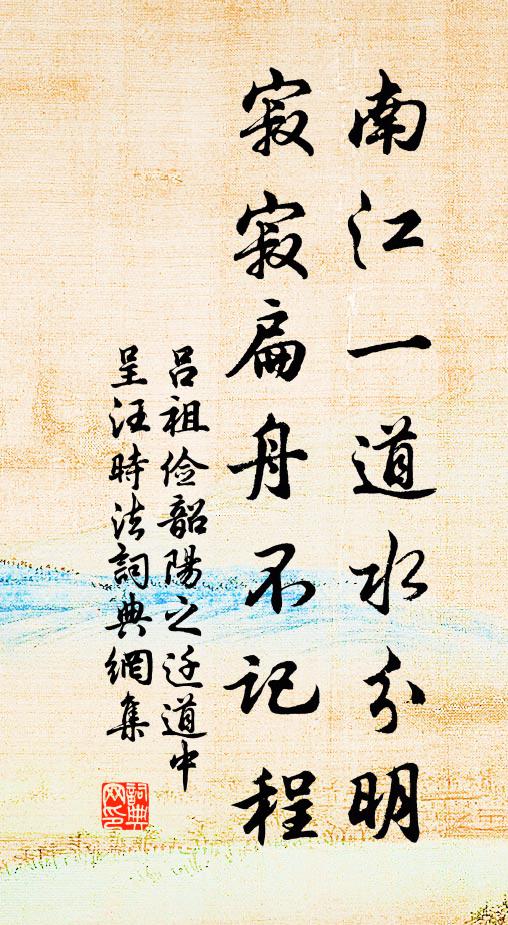 南江一道水分明
寂寂扁舟不记程
吕祖俭韶陽之迁道中
呈汪時法詞典網集
詞典網印